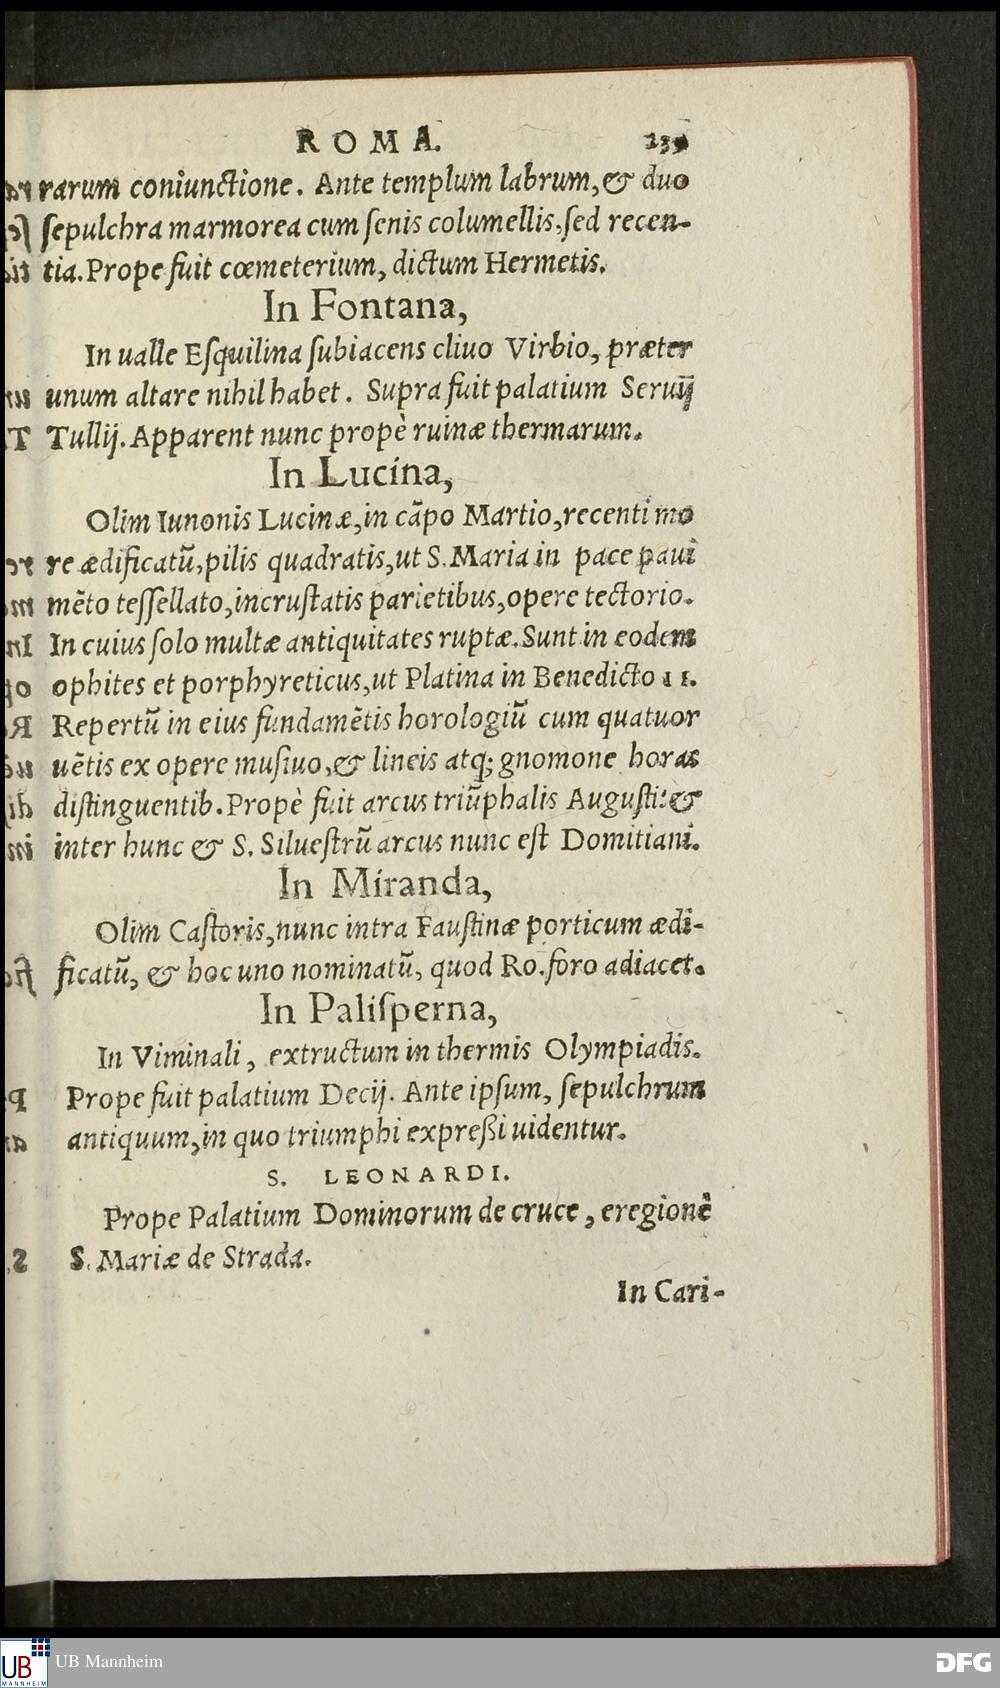 ROMA. 239
rarum coniunctione. Ante templum labrum, & duo
ſepulchra marmorea cum ſenis columellis, ſed recen-
tia. Prope fuit cœmeterium, dictum Hermetis.
In Fontana,
In ualle Eſquilina ſubiacens cliuo Virbio, præter
unum altare nihil habet. Supra fuit palatium Seruij
Tullij. Apparent nunc propè ruinæ thermarum.
In Lucina,
Olim Iunonis Lucinæ, in cāpo Martio, recenti mo
re ædificatū, pilis quadratis, ut S. Maria in pace paui
mēto teſſellato, incruſtatis parietibus, opere tectorio.
In cuius ſolo multæ antiquitates ruptæ. Sunt in eodem
ophites et porphyreticus, ut Platina in Benedicto II.
Repertū in eius fundamētis horologiū cum quatuor
uētis ex opere muſiuo, & lineis atq; gnomone horas
diſtinguentib. Propè fuit arcus triūphalis Auguſti: &
inter hunc & S. Silueſtrū arcus nunc eſt Domitiani.
In Miranda,
Olim Caſtoris, nunc intra Fauſtinæ porticum ædi-
ficatū, & hoc uno nominatū, quod Ro. foro adiacet.
In Paliſperna,
In Viminali, extructum in thermis Olympiadis.
Prope fuit palatium Decij. Ante ipſum, ſepulchrum
antiquum, in quo triumphi expreßi uidentur.
S. LEONARDI.
Prope Palatium Dominorum de cruce, eregione
S. Mariæ de Strada.
In Cari-
UB
MANNHEIM
UB Mannheim
DFG